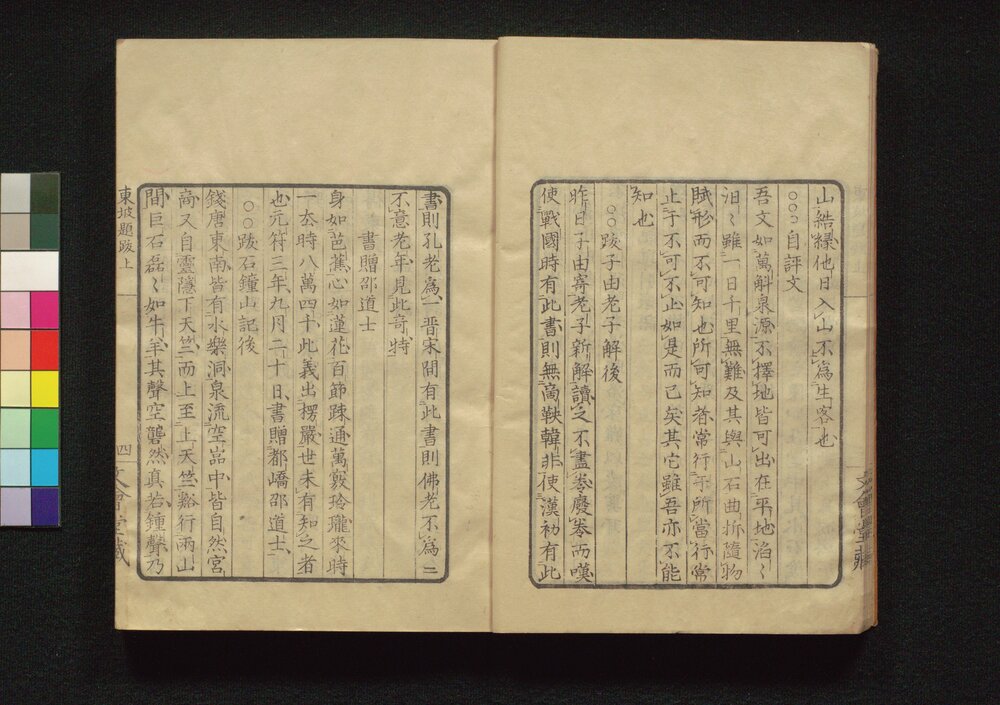 山結緑他日入山不爲生客也
○○○自評文
吾文如萬斛泉源不擇地皆可出在平地滔〻
汨〻雖一日千里無難及其與山石曲折隨物
賦形而不可知也所可知者常行于所當行常
止于不可不止如是而已矣其它雖吾亦不能
知也
○○跋子由老子解後
昨日子由寄老子新解讀之不盡卷廢卷而嘆
使戰國時有此書則無商鞅韓非使漢初有此
書則孔老爲一晋宋間有此書則佛老不爲二
不意老年見此奇特
書贈邵道士
身如芭蕉心如蓮花百節踈通萬竅玲瓏來時
一去時八萬四千此義出楞嚴世未有知之者
也元符三年九月二十日書贈都嶠邵道士
○○跋石鐘山記後
錢唐東南皆有水樂洞泉流空岩中皆自然宮
商又自靈隱下天竺而上至上天竺谿行兩山
間巨石磊〻如牛羊其聲空礱然真若鍾聲乃
東坡題跋上
四
文會堂藏